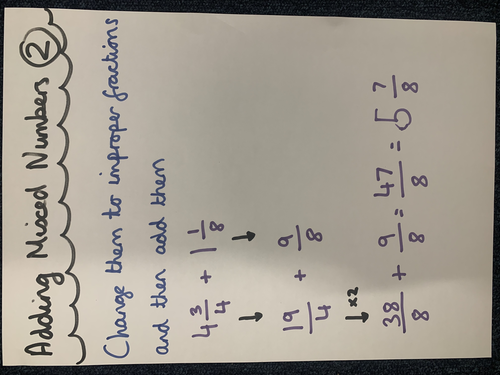 Adding Mixed Numbers 2
Change them to improper fractions
and then add them
4 3/4 + 1 1/8
↓ ↓
19/4 + 9/8
↓ ×2
38/8 + 9/8 = 47/8 = 5 7/8